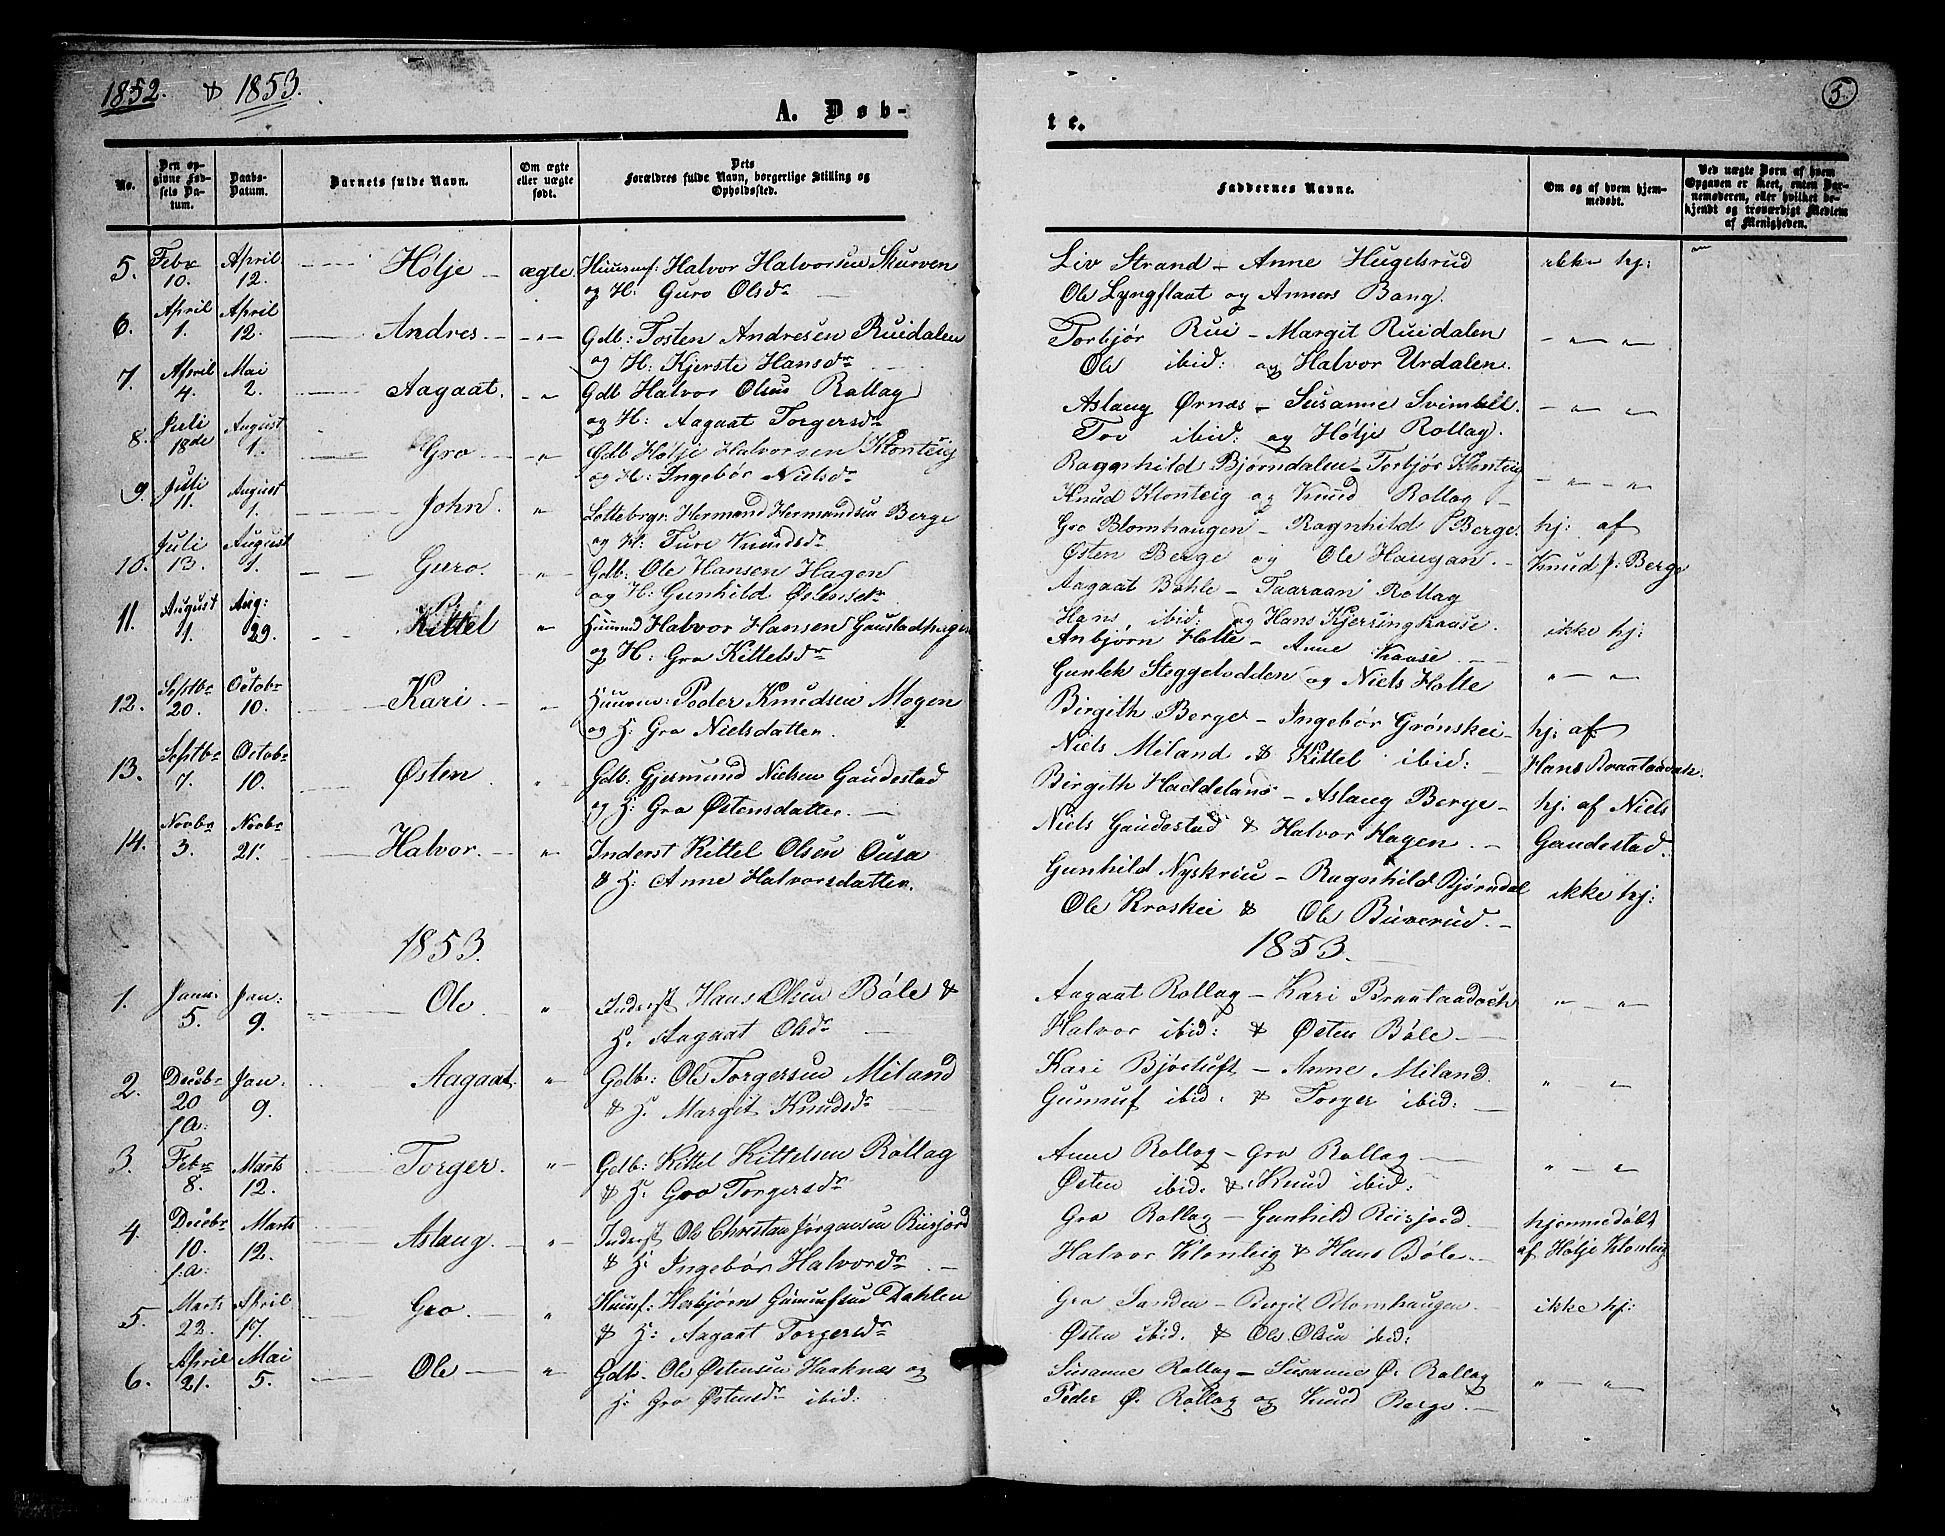 1852. & 1853.
5.
A. Døb-
te.
No.
Den op-
givne Fød-
sels Da-
tum.
Daabs-
Datum.
Barnets fulde Navn.
Om ægte
eller uægte
født.
Dets
Forældres fulde Navn, borgerlige Stilling og
Opholdssted.
Faddernes Navne.
Om og af hvem hjem-
medøbt.
Ved uægte Børn af hvem
Opgaven er skeet, enten Bar-
nemoderen, eller hvilket be-
kjendt og troværdigt Medlem
af Menigheden.
5. Febr 10. April 12. Hølje ægte Huusmf: Halvor Halvorsen Skurven
og H: Guro Olsdr
Liv Strand - Anne Hugelsrud ikke hj:
Ole Lyngflaat og Anners Bang.
6. April 1. April 12. Andres - " - Gdb: Tosten Andresen Ruidalen
og H: Kjerste Hansdr
Torbjør Rui - Margit Ruidalen - " - "
Ole ibid: og Halvor Urdalen.
7. April 4. Mai 2. Aagaat. - " Gdb Halvor Olsen Rollag
og H: Aagaat Torgersdr
Aslaug Ørnæs - Susanne Svimbil. - " - "
Tov ibid: og Hølje Rollag.
8. Juli 18de August 1. Gro - " - Gdb Hølje Halvorsen Klonteig
og H: Ingebør Nielsdr
Raggnhild Bjørndalen - Torbjør Klonteig - " - "
Knud Klonteig og Knud Rollag -
9. Juli 11. August 1. John. " Lottebrgr: Hermand Hermandsen Berge
og H: Ture Knudsdr
Gro Blomhaugen - Ragnhild Berge. hj: af
Østen Berge og Ole Haugan. - Knud Berge
10. Juli 13. August 1. Guro. " Gdb: Ole Hansen Hagen
og H: Gunhild Østensdr
Aagaat Bøhle - Taaraan Rollag
Hans ibid: og Hans Kjerringkaase. ikke hj:
11. August 1. Aug: 29. Kittel " Huusmd Halvor Hansen Gaustadhagen
og H: Gro Kittelsdr
Anbjørn Holte - Anne Kaase
Gunlek Steggelodden og Niels Holte " - "
12. Septbr 20. Octobr 10. Kari. " Huusm: Peder Knudsen Mogen
og H: Gro Nielsdatter.
Birgith Berge - Ingebør Grønskei - hj: af
Niels Miland & Kittel ibid: Hans
13. Septbr 7. Octobr 10. Østen " Gdb: Gjermund Nielsen Gaudestad
og H: Gro Østensdatter. -
Birgith Haddeland - Aslaug Berge - hj. af Niels
Niels Gaudestad & Halvor Hagen. - Gaudestad.
14. Novbr 3. Novbr 21. Halvor. " Inderst Kittel Olsen Ousa
& H: Anne Halvorsdatter.
Gunhild Nyskriu - Ragnhild Bjørndal ikke hj:
Ole Kraskei & Ole Buverud. -
1853.
1853.
1. Janu: 5. Jan: 9. Ole " Inderst Hans Olsen Bøle &
H. Aagaat Olsdr
Aagaat Rollag - Kari " - "
Halvor ibid: & Østen Bøle -
2. Decbr 20 f.a: Jan: 9. Aagaat. " Gdb: Ole Torgersen Miland
& H. Margit Knudsdr
Kari Bjørtuft - Anne Miland. " - "
Gunnuf ibid. & Torger ibid:
3. Febr 8. Marts 12. Torger. " Gdb: Kittel Kittelsen Rollag
& H. Gro Torgersdr
Anne Rollag - Gro Rollag " - "
Østen ibid. & Knud ibid:
4. Decbr 10. f.a: Marts 12. Aslaug " Inderst Ole Christian Jørgensen Riisjord
& H. Ingebør Halvorsdr -
Gro Rollag - Gunhild Riisjord. hjemmedøbt
Halvor Klonteig & Hans Bøle - af Hølje Klonteig
5. Marts 22. April 17. Gro. " Huusf: Herbjørn Gunnufsen Dahlen
& H: Aagaat Torgersdr
Gro Sanden - Bergit Blomhaugen. ikke hj:
Østen ibid. & Ole Olsen ibid:
6. April 21. Mai 5. Ole " Gdb. Ole Østensen Haaknæs og
H. Gro Østensdr ibid:
Susanne Rollag - Susanne Ø. Rollag " - "
Peder Ø. Rollag og Knud Berge. -